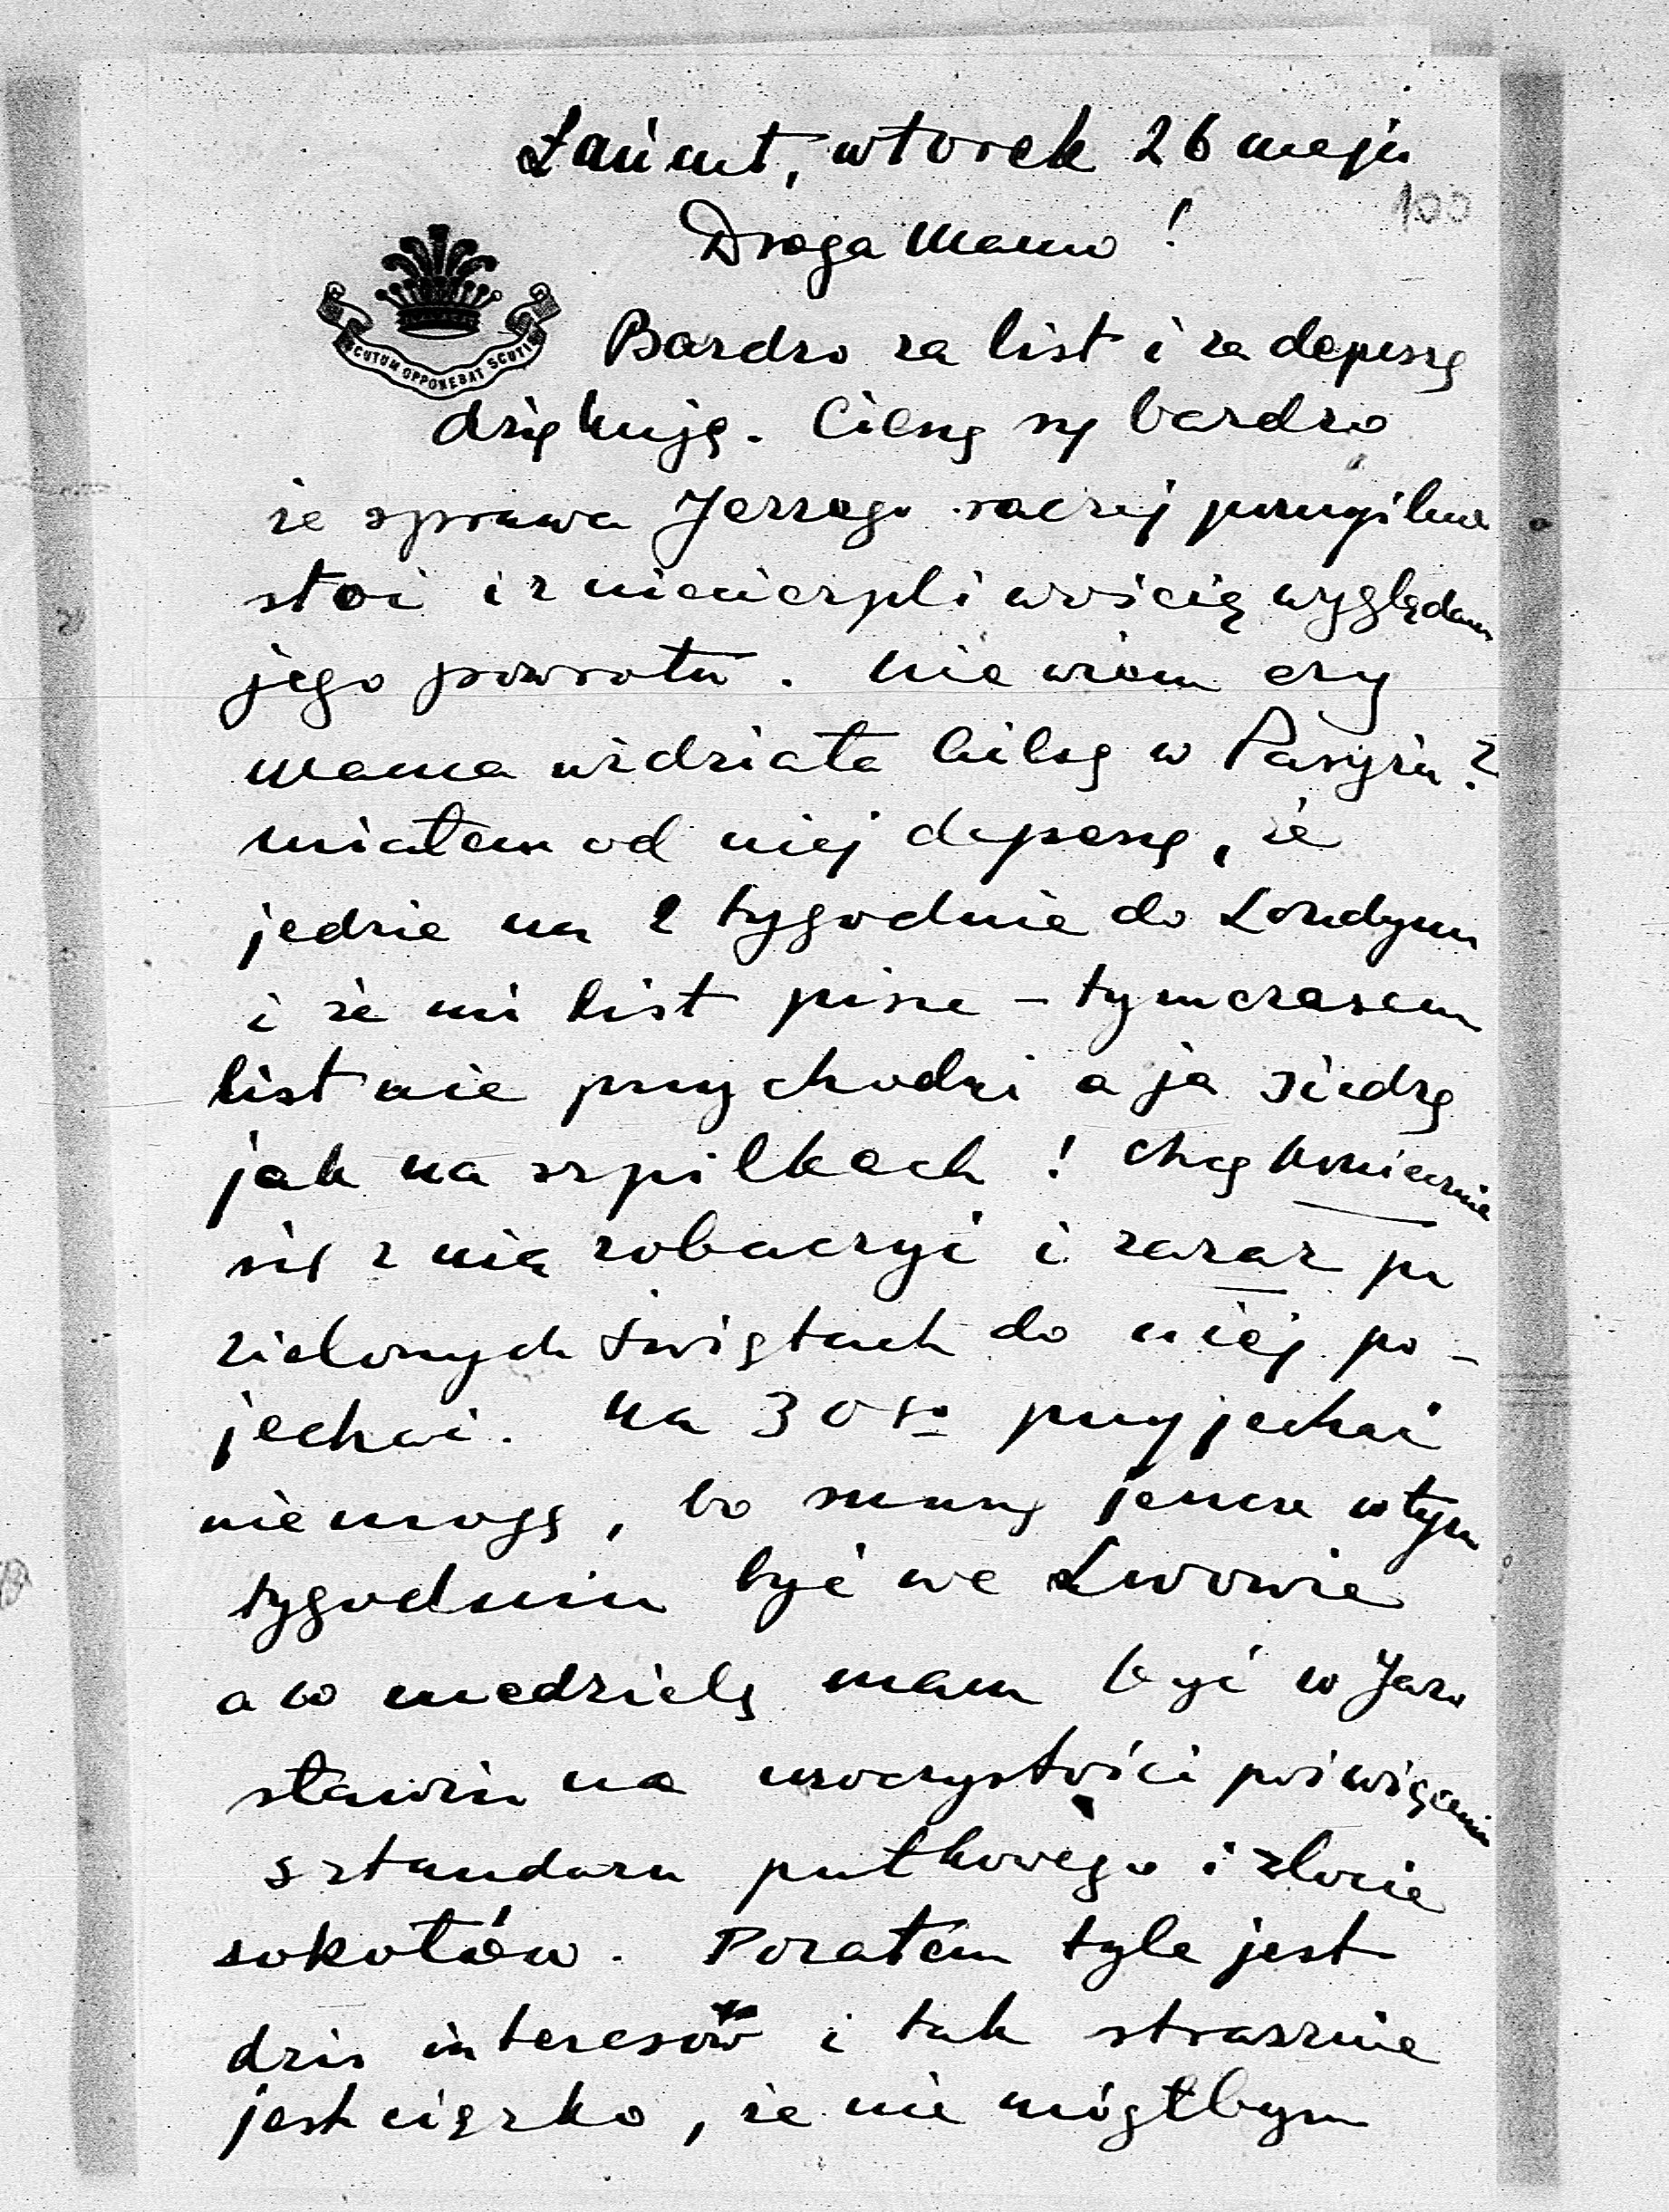 Łańcut, wtorek 26 maja
100
Droga Mamo!
SCUTUM OPPONEBAT SCUTIS
Bardzo za list i za depeszę
dziękuję. Cieszę się bardzo
że sprawa Jerzego raczej pomyślnie
stoi i z niecierpliwością wyglądam
jego powrotu. Nie wiem czy
Mama widziała w Paryżu?
miałem od niej depeszę, że
jedzie na 2 tygodnie do Londynu
i że mi list pisze – tymczasem
list nie przychodzi a ja siedzę
jak na szpilkach! Chcę koniecznie
się z nią zobaczyć i zaraz po
zielonych świętach do niej po-
jechać. Na 30go przyjechać
nie mogę, bo muszę jeszcze w tym
tygodniu być we Lwowie
a w niedzielę mam być w Jaro
sławiu na uroczystości poświęcenia
sztandaru pułkowego i zlocie
sokołów. Pozatem tyle jest
dziś interesów i tak strasznie
jest ciężko, że nie mógłbym